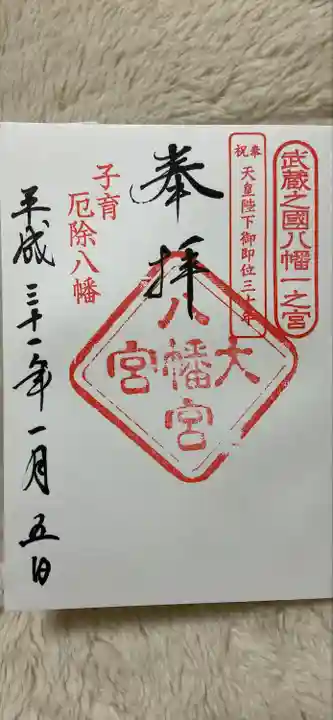 武蔵之國八幡一之宮
奉祝 天皇陛下御即位三十年
奉拝
大宮八幡宮
子育
厄除八幡
平成三十一年一月五日